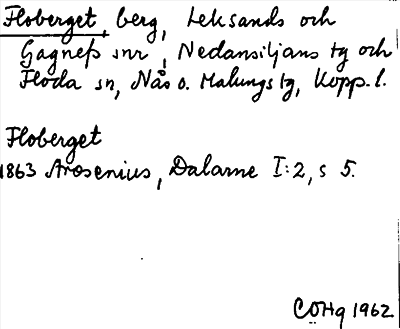 Floberget, berg, Leksands och
Gagnefs snr, Nedansiljans tg och
Floda sn, Nås o. Malungs tg, Kopp. l.
Floberget
1863 Arosenius, Dalarne I:2, s 5.
COHq 1962